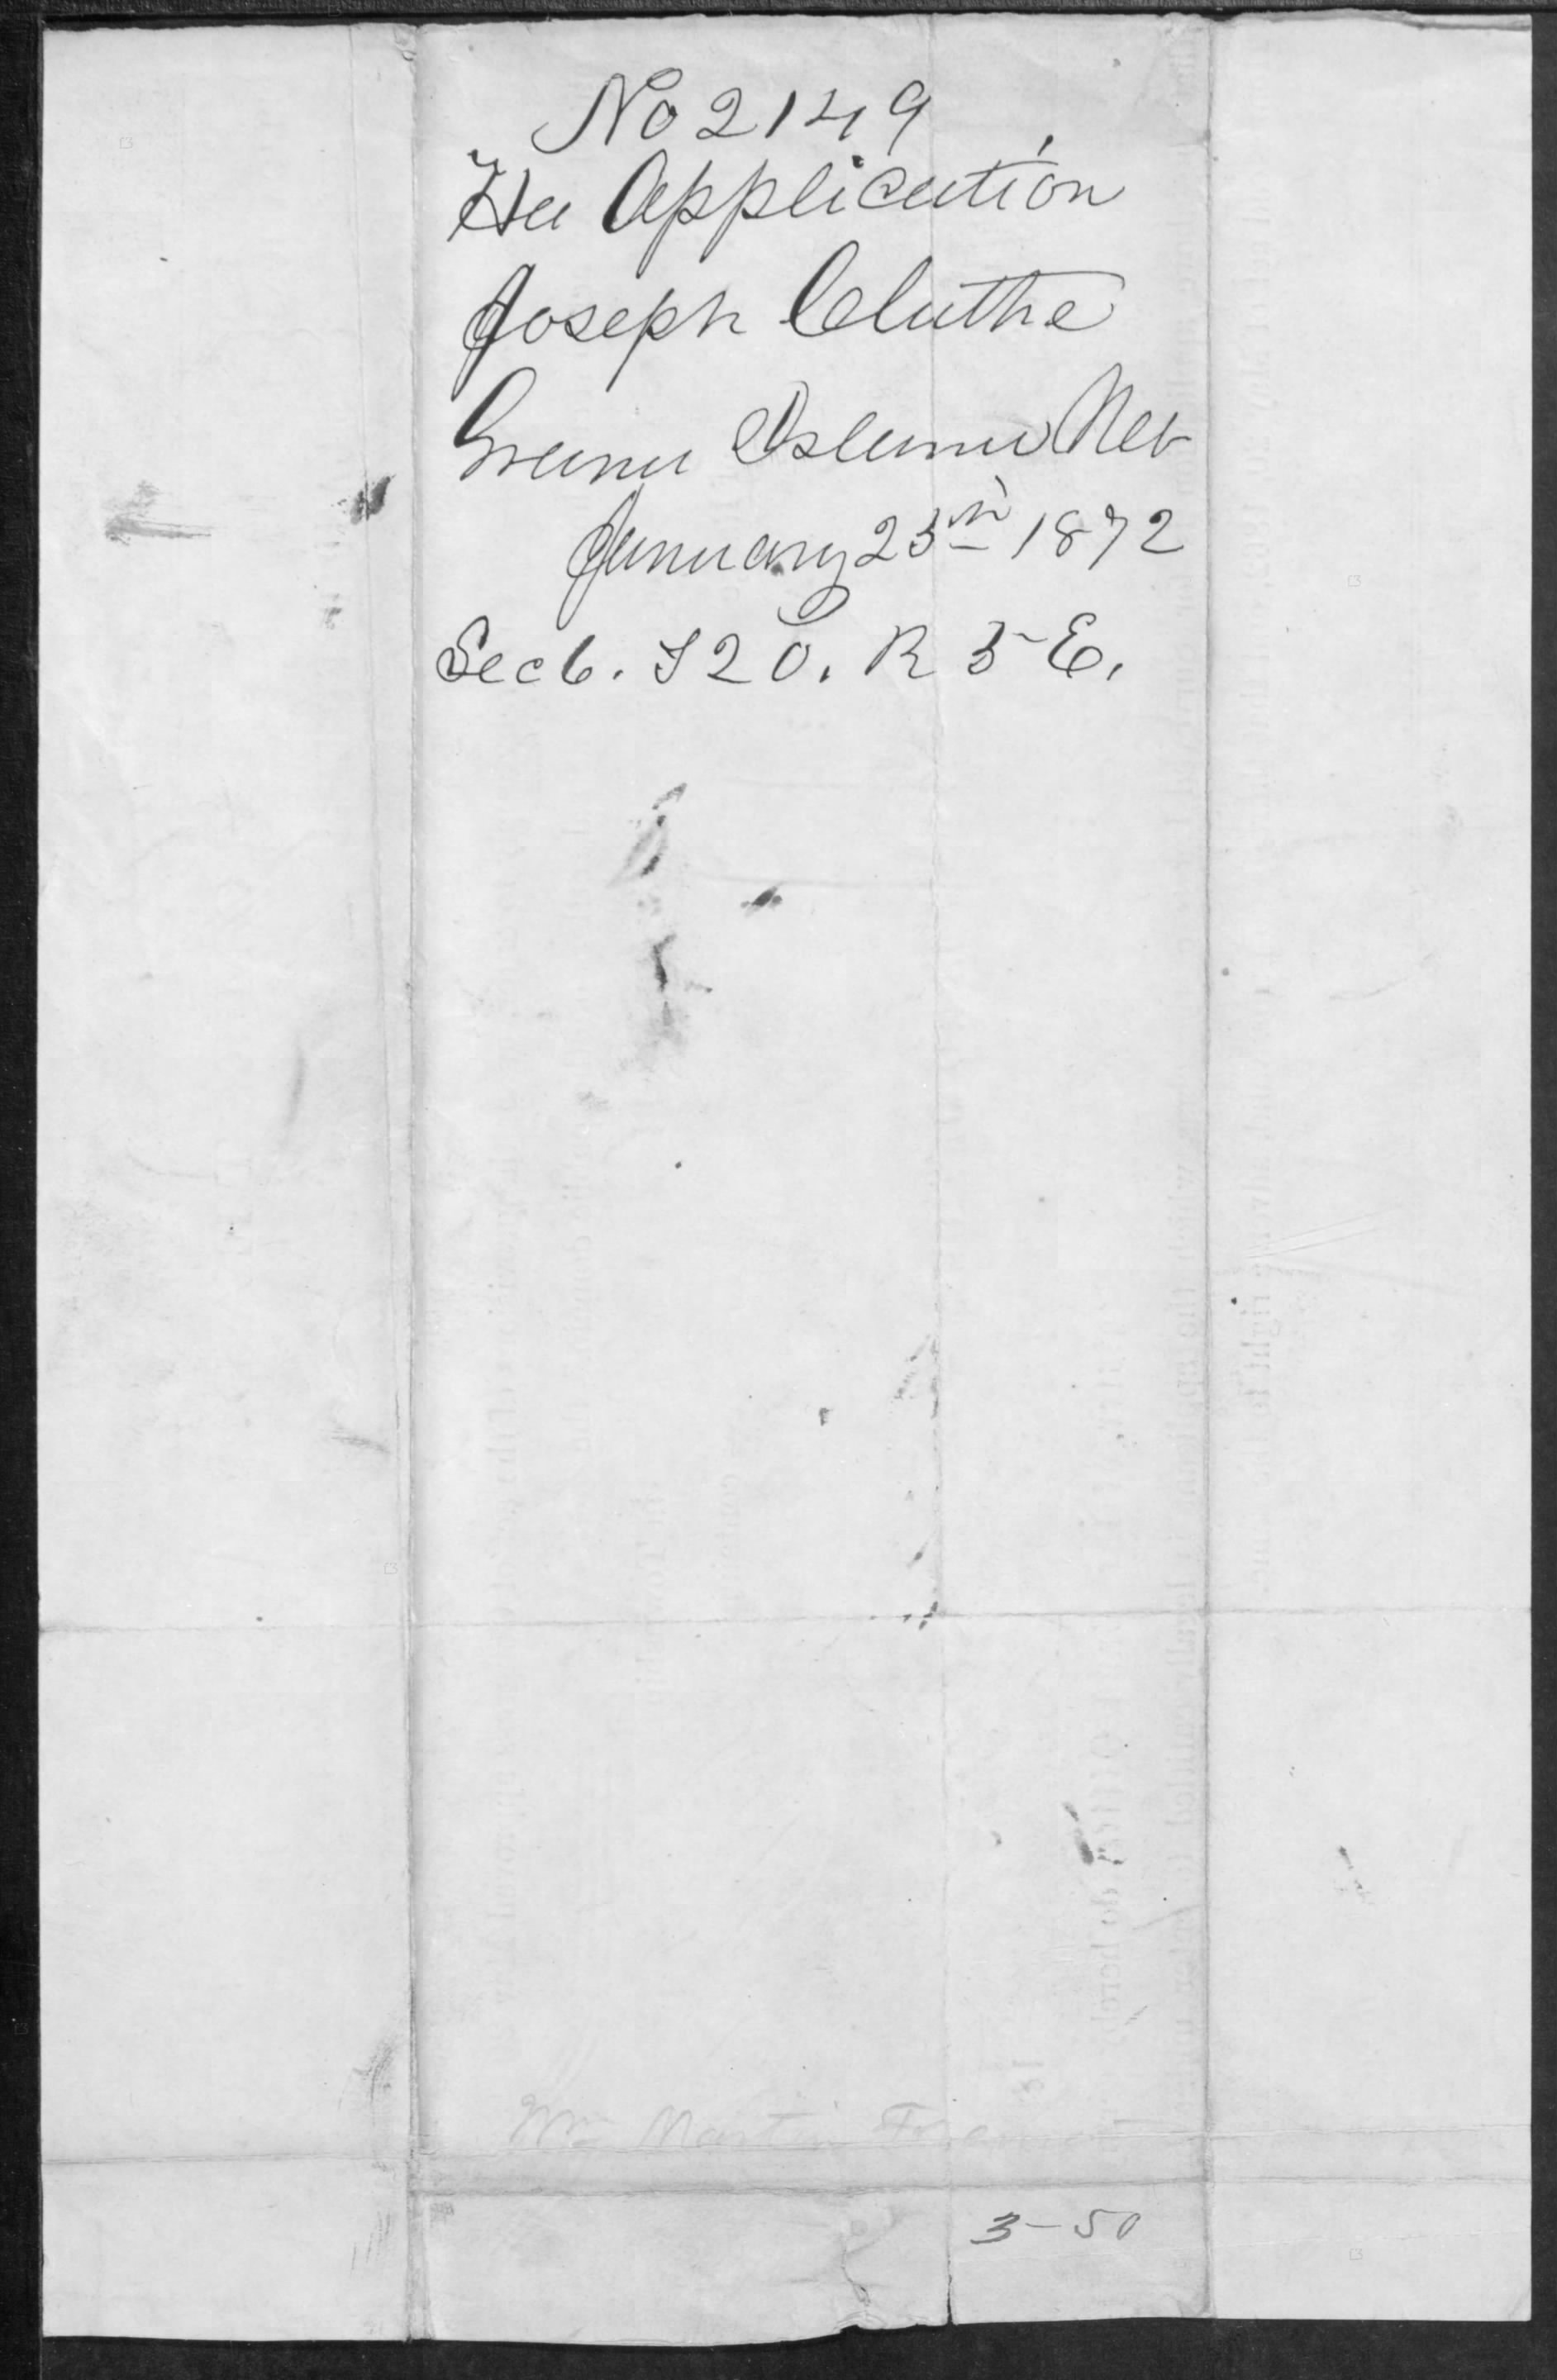 No 2149
Hd Application
Joseph Cluthe
Grand Island Neb
January 23rd 1872
Sec 6. T 20. R 5 E.
Mr Martin
3-50